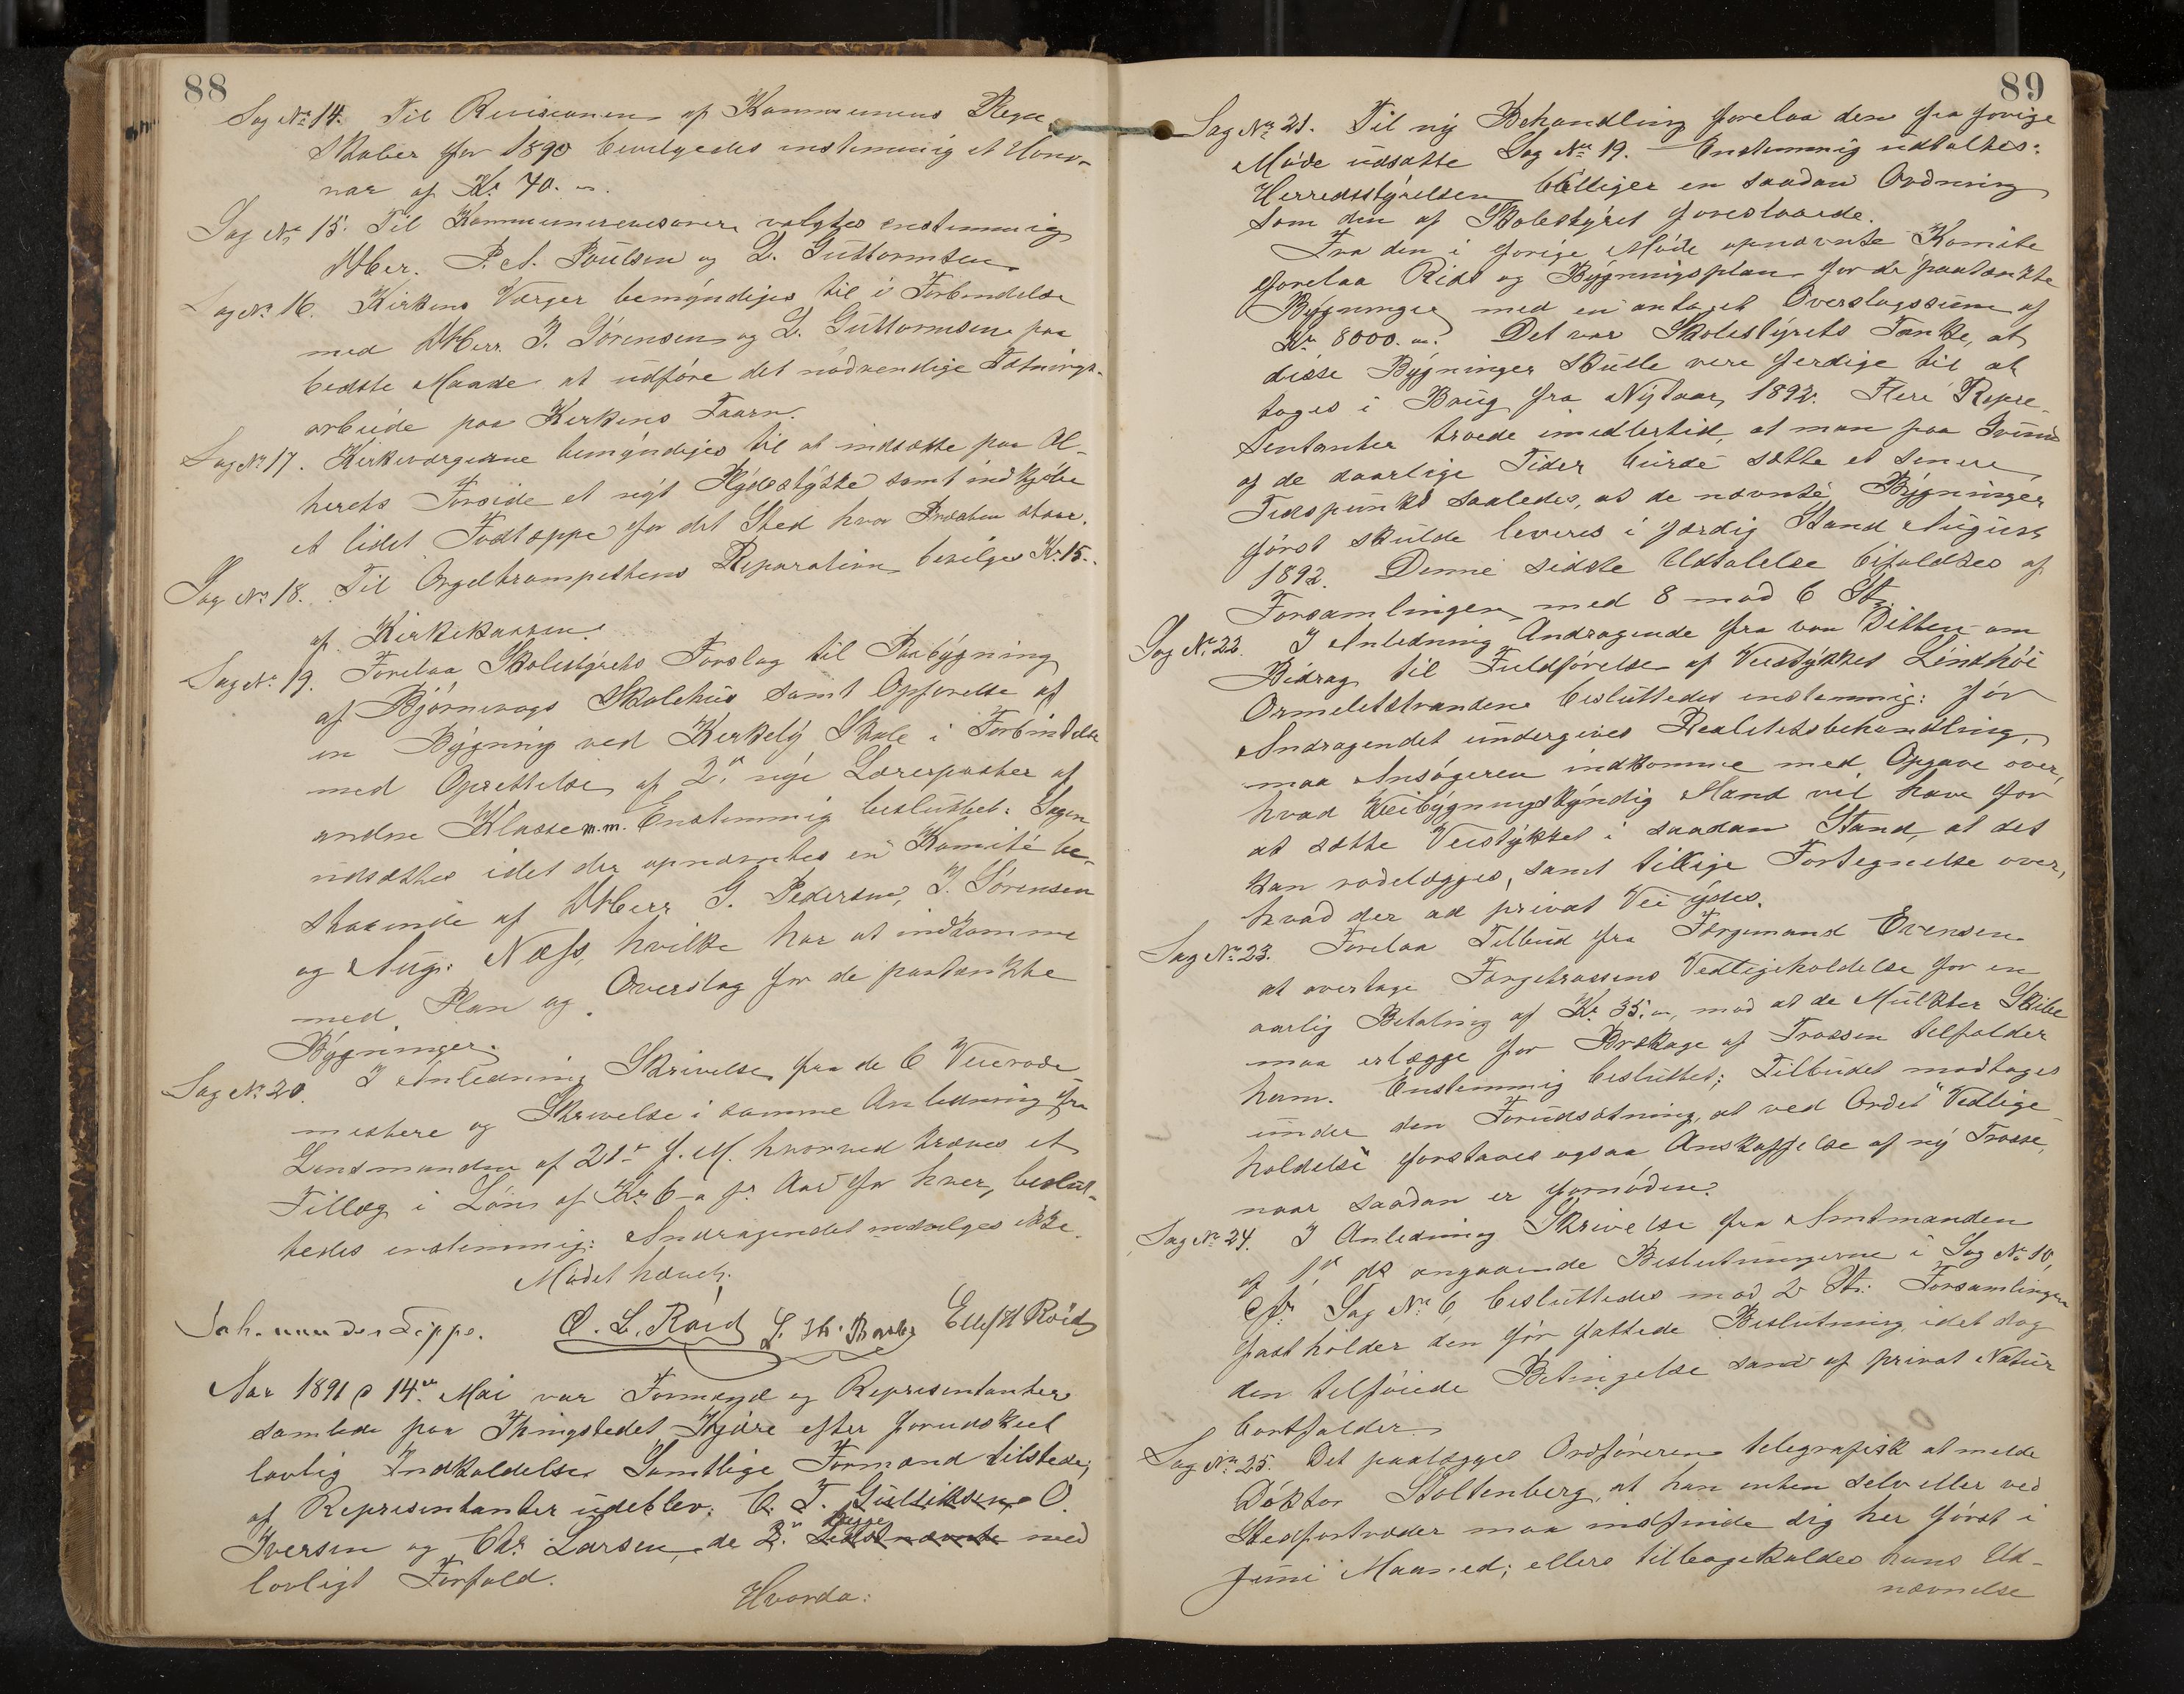 88
Sag No 14. Til Revisionen af Kommunens Regn-
skaber for 1890 bevilgedes enstemmig et Hono-
rar af Kr 70.
Sag No 15. Til Kommunerevisorer valgtes enstemmig
DHer. P. A. Poulsen og L. Guttormsen
Sag No 16. Kirkens Værger bemyndiges til i Forbindelse
med DHerr. J. Sørensen og L. Guttormsen paa
bedste Maade at udføre det nødvendige Tætnings-
arbeide paa Kirkens Taarn.
Sag No 17. Kirkeværgerne bemyndiges til at indsætte paa Al-
terets Forside et nyt Fløielsstykke samt indkjøbe
et lidet Fodtæppe for det Sted hvor Præsten staar.
Sag No 18. Til Orgeltrampettens Reparation bevilges Kr. 15.
af Kirkekassen.
Sag No 19. Forelaa Skolestyrets Forslag til Paabygning
af Bjørnevaags Skolehus samt Opførelse af
en Bygning ved Kirkely Skole i Forbindelse
med Oprettelse af 2de nye Lærerposter af
anden Klasse m.m. Enstemmig besluttet: Sagen
udsættes idet der opnævntes en Komite be-
staaende af DHerr G. Pedersen, J. Sørensen
og Aug: Næss, hvilke har at indkomme
med Plan og Overslag for de paatænkte
Bygninger.
Sag No 20. I Anledning Skrivelse fra de 6 Veierode-
mestere og Skrivelse i samme Anledning fra
Lensmanden af 21de f. M. hvorved kræves et
Tillæg i Løn af Kr 6 pr Aar for hver, beslut-
tedes enstemmig: Andragendet indvilges ikke.
Mødet hævet.
Joh. von der Lippe. O. L. Røed Ellef H Røed
Aar 1891 d 14de Mai var Formænd og Representanter
samlede paa Thingstedet Kjøre efter forudskeet
lovlig Indkaldelse. Samtlige Formænd tilstede;
af Representanter udeblev: C. T. Gulliksen, O.
Iversen og Chr. Larsen, de 2de begge sidstnævnte med
lovligt Forfald.
Hvorda:
89
Sag No 21. Til ny Behandling forelaa den fra forrige
Møde udsatte Sag No 19. – Enstemmig udtaltes:
Herredsstyrelsen billiger en saadan Ordning
som den af Skolestyret foreslaaede.
Fra den i forrige Møde opnævnte Komite
forelaa Rids og Bygningsplan for de paatænkte
Bygninger med en antaget Overslagssum af
Kr 8000. Det var Skolestyrets Tanke, at
disse Bygninger skulle være ferdige til at
tages i Brug fra Nytaar 1892. Flere Repre-
sentanter troede imidlertid, at man paa Grund
af de daarlige Tider burde sætte et senere
Tidspunkt saaledes, at de nævnte Bygninger
først skulde leveres i færdig Stand August
1892. Denne sidste Udtalelse bifaldtes af
Forsamlingen med 8 mod 6 St.
Sag No 22. I Anledning Andragende fra von Ditten om
Bidrag til Fuldførelse af Veistykket Lindhøi
Ormeletstranden besluttedes enstemmig: før
Andragendet undergives Realitetsbehandling,
maa Ansøgeren indkomme med Opgave over,
hvad Veibygningskyndig Mand vil have for
at sætte Veistykket i saadan Stand, at det
kan rodelægges, samt tillige Fortegnelse over,
hvad der ad privat Vei ydes.
Sag No 23. Forelaa Tilbud fra Færgemand Evensen
at overtage Færgetrossens Vedligeholdelse for en
aarlig Betaling af Kr 35, mod at de Mulkter Skibe
maa erlægge for Brækage af Trossen tilfalder
ham. Enstemmig besluttet: Tilbudet modtages
under den Forudsætning, at ved Ordet "Vedlige-
holdelse" forstaaes ogsaa Anskaffelse af ny Trosse,
naar saadan er fornøden.
Sag No 24. I Anledning Skrivelse fra Amtmanden
af 1ste ds angaaende Beslutningerne i Sag No 10,
cfr Sag No 6, besluttedes mod 2 St: Forsamlingen
fastholder den før fattede Beslutning, idet dog
den tilføiede Betingelse som af privat Natur
bortfalder
Sag No 25. Det paalægges Ordføreren telegrafisk at melde
Doktor Stoltenberg, at han enten selv eller ved
Stedfortræder maa indfinde sig her først i
Juni Maaned; ellers tilbagekaldes hans Ud-
nævnelse